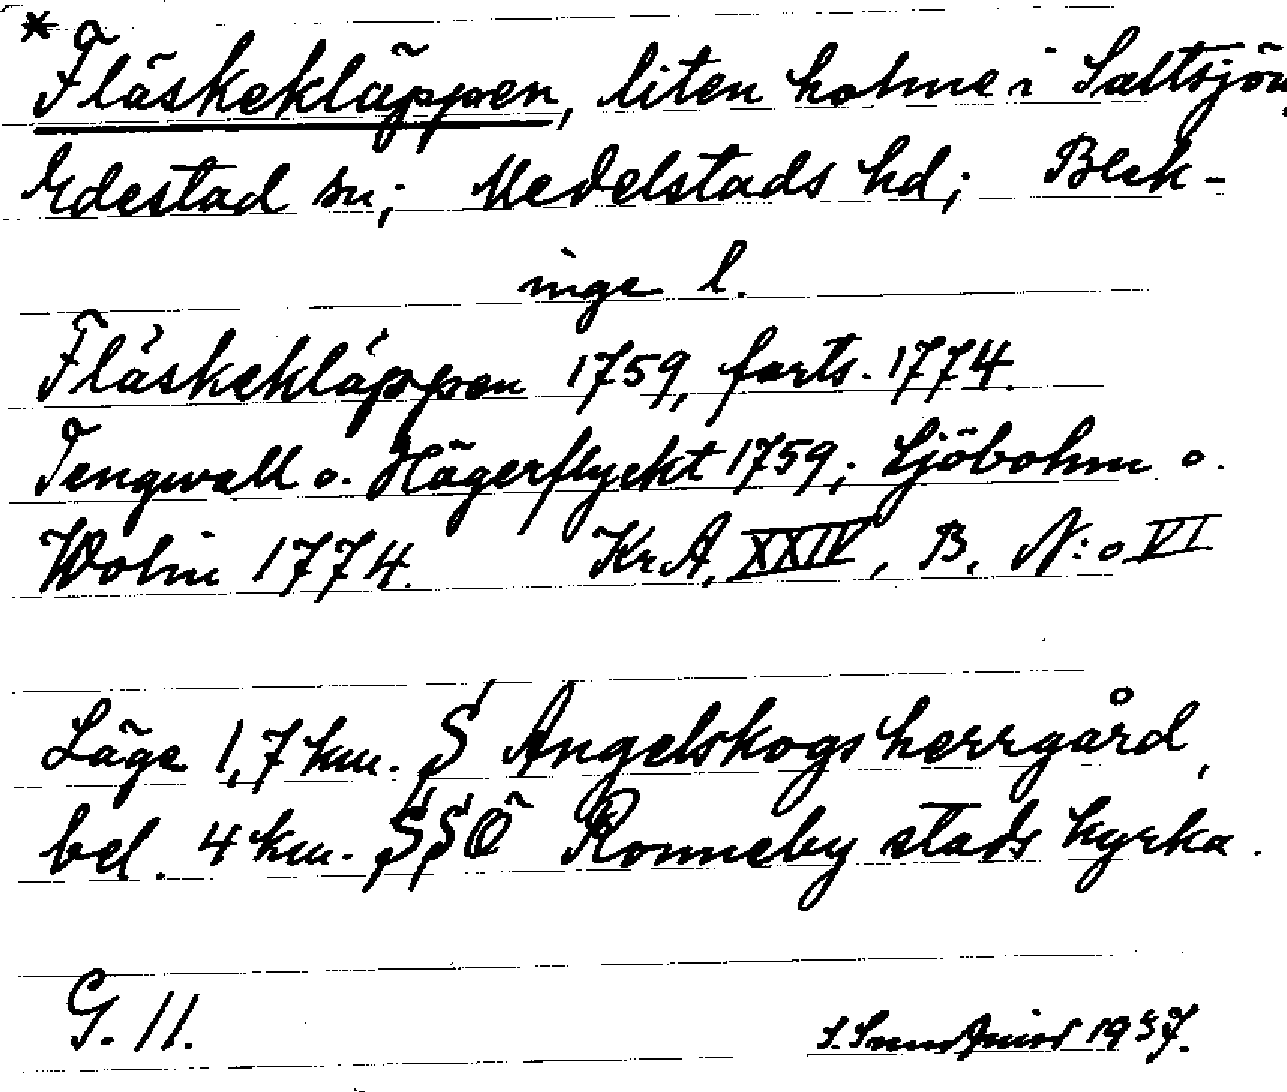 * Fläskekläppen, liten holme i Saltsjön,
Edestad sn; Medelstads hd; Blek-
inge l.
Fläskekläppen 1759, forts. 1774.
Tengwall o. Hägerflyckt 1759; Sjöbohm o.
Wolin 1774. Kr.A. XXIV, B, N:o VI
Läge 1,7 km. S Angelskogs herrgård,
bel. 4 km. SSÖ Ronneby stads kyrka.
G. 11.
1937.